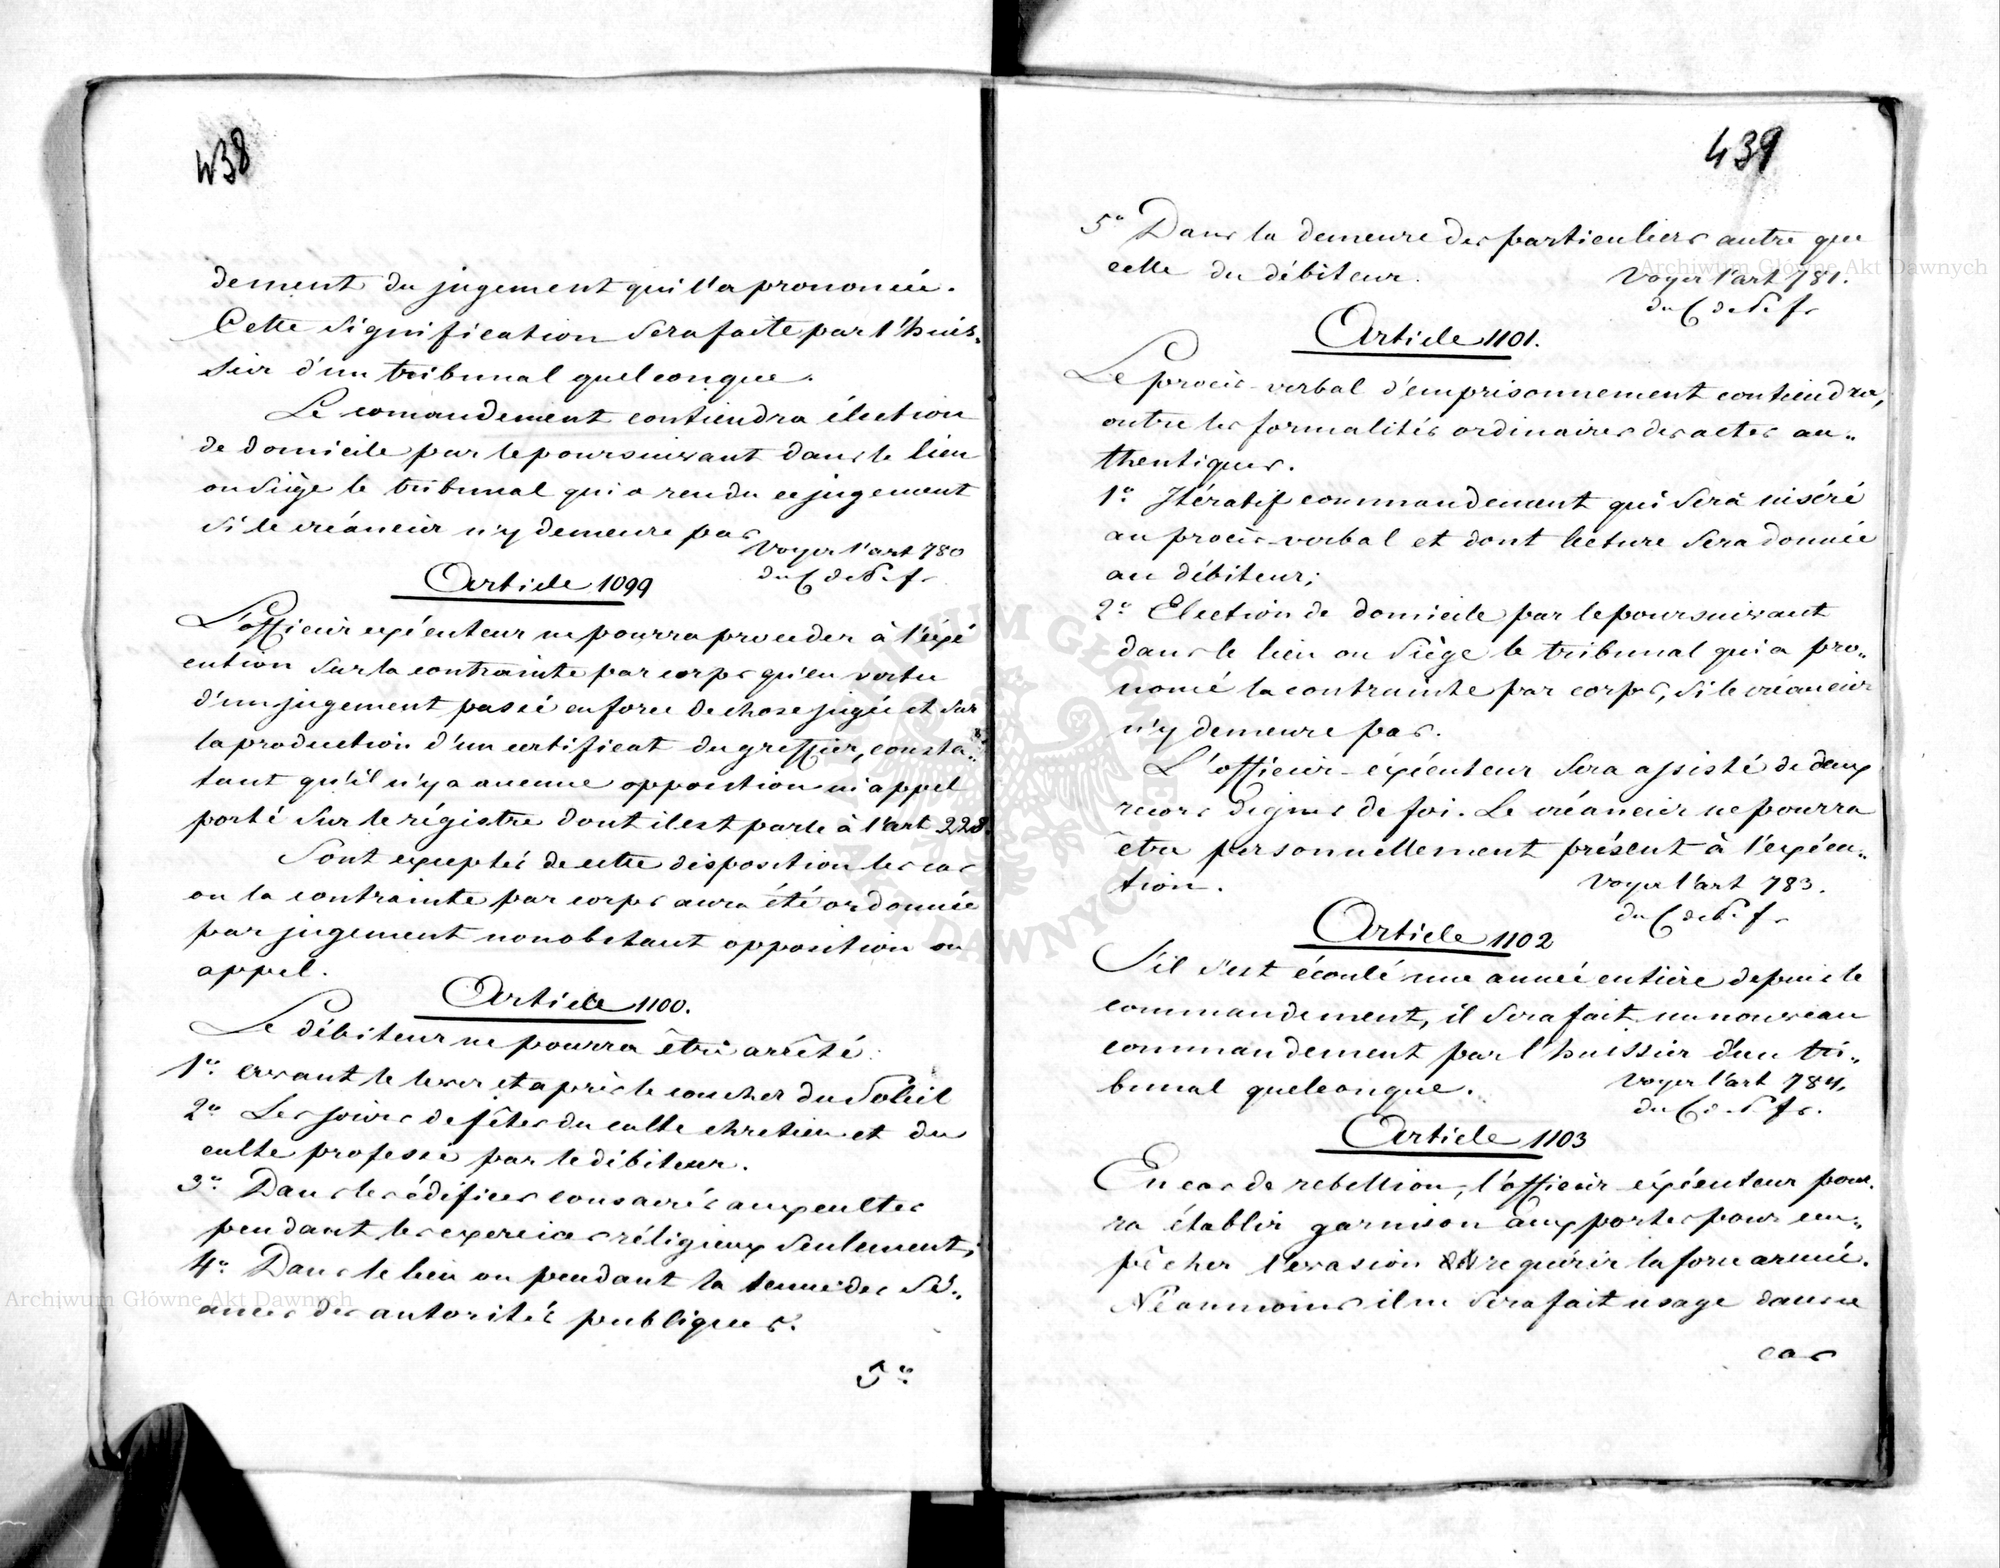 438
dement du jugement qui l'a prononcée.
Cette signification sera faite par l'huis„
sier d'un tribunal quelconque.
Le comandement contiendra élection
de domicile par le poursuivant dans le lien
ou siège le tribunal qui a rendu ce jugement
si le créancier n'y demeure pas
Voyez l'art 780
du C de P. f.
Article 1099
L'officier exécuteur ne pourra proceder à l'exé
cution sur la contrainte par corps qu'en vertu
d'un jugement passé en force de chose jugée et sur
la production d'un certificat du greffier, consta„
tant qu'il n'y a aucune opposition ni appel
porté sur le régistre dont il est parlé à l'art 228.
Sont exceptés de cette disposition les cas
ou la contrainte par corps aura été ordonnée
par jugement nonobstant opposition ou
appel.
Article 1100.
Le débiteur ne pourra être arrêté:
1° avant le lever et après le coucher du Soleil
2° Les jours de fêtes du culte chretien et du
culte professé par le débiteur.
3° Dans les édifices consacrés aux cultes
pendant les exercices réligieux seulement;
4° Dans le lieu ou pendant la tenue des sé„
ances des autorités publiques.
5°
439
5° Dans la demeure des particuliers autre que
celle du débiteur.
Voyez l'art 781.
du C de P. f.
Article 1101.
Le procès-verbal d'emprisonnement contiendra,
outre les formalités ordinaires des actes au„
thentiques.
1° Itératif commandement qui sera inséré
au procès-verbal et dont lecture sera donnée
au débiteur;
2° Election de domicile par le poursuivant
dans le lieu ou siège le tribunal qui a pro„
noncé la contrainte par corps, si le créancier
n'y demeure pas.
L'officier-exécuteur sera assisté de deux
recors dignes de foi. Le créancier ne pourra
être personnellement présent à l'exécu„
tion.
Voyez l'art 783.
du C de P. f.
Article 1102
S'il s'est écoulé une année entière depuis le
commandement, il sera fait un nouveau
commandement par l'huissier d'un tri„
bunal quelconque.
Voyez l'art 784.
du C de P. f.
Article 1103
En cas de rebellion, l'officier exécuteur pour.
ra établir garnison aux portes pour em„
pêcher l'evasion et requérir la force armée.
Néanmoins il ne sera fait usage dans ce
cas
Archiwum Główne Akt Dawnych
Archiwum Główne Akt Dawnych
ARCHIWUM GŁÓWNE AKT DAWNYCH